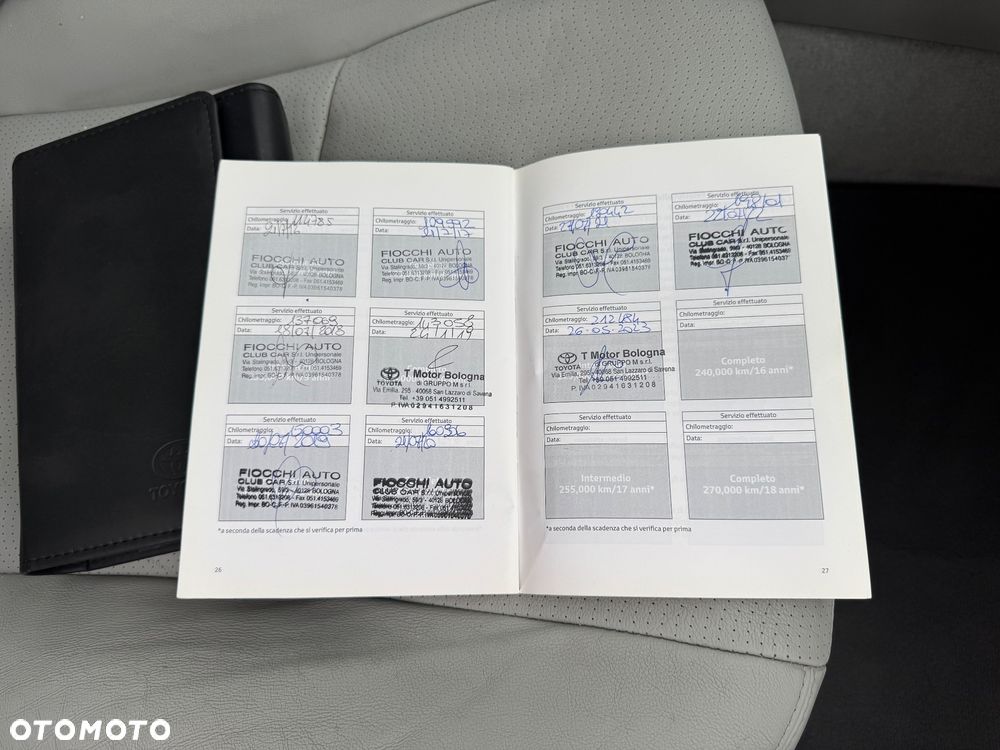 Servizio effettuato
Chilometraggio: 114785
Data: 21/7/16
FIOCCHI AUTO
CLUB CAR S.r.l. Unipersonale
Via Stalingrado, 59/3 - 40128 BOLOGNA
Telefono 051.6313208 - Fax 051.4153469
Reg. Impr. BO-C.F.-P. IVA 03961540378
Servizio effettuato
Chilometraggio:
Data: 21/7/17
FIOCCHI AUTO
CLUB CAR S.r.l. Unipersonale
Via Stalingrado, 59/3 - 40128 BOLOGNA
Telefono 051.6313208 - Fax 051.4153469
Reg. Impr. BO-C.F.-P. IVA 03961540378
Servizio effettuato
Chilometraggio: 137069
Data: 18/07/2018
FIOCCHI AUTO
CLUB CAR S.r.l. Unipersonale
Via Stalingrado, 59/3 - 40128 BOLOGNA
Telefono 051.6313208 - Fax 051.4153469
Reg. Impr. BO-C.F.-P. IVA 03961540378
Servizio effettuato
Chilometraggio: 147058
Data:
TOYOTA
T Motor Bologna
di GRUPPO M s.r.l.
Via Emilia, 295 - 40068 San Lazzaro di Savena
Tel. +39 051 4992511
P. IVA 02941631208
Servizio effettuato
Chilometraggio:
Data:
FIOCCHI AUTO
CLUB CAR S.r.l. Unipersonale
Via Stalingrado, 59/3 - 40128 BOLOGNA
Telefono 051.6313208 - Fax 051.4153469
Reg. Impr. BO-C.F.-P. IVA 03961540378
Servizio effettuato
Chilometraggio:
Data:
FIOCCHI AUTO
CLUB CAR S.r.l. Unipersonale
Via Stalingrado, 59/3 - 40128 BOLOGNA
Telefono 051.6313208 - Fax 051.4153469
Reg. Impr. BO-C.F.-P. IVA 03961540378
*a seconda della scadenza che si verifica per prima
26
Servizio effettuato
Chilometraggio:
Data:
FIOCCHI AUTO
CLUB CAR S.r.l. Unipersonale
Via Stalingrado, 59/3 - 40128 BOLOGNA
Telefono 051.6313208 - Fax 051.4153469
Reg. Impr. BO-C.F.-P. IVA 03961540378
Servizio effettuato
Chilometraggio:
Data: 22/07/22
FIOCCHI AUTO
CLUB CAR S.r.l. Unipersonale
Via Stalingrado, 59/3 - 40128 BOLOGNA
Telefono 051.6313208 - Fax 051.4153469
Reg. Impr. BO-C.F.-P. IVA 03961540378
Servizio effettuato
Chilometraggio: 212484
Data: 26-05-2023
TOYOTA
T Motor Bologna
di GRUPPO M s.r.l.
Via Emilia, 295 - 40068 San Lazzaro di Savena
Tel. +39 051 4992511
P. IVA 02941631208
Servizio effettuato
Chilometraggio:
Data:
Completo
240,000 km/16 anni*
Servizio effettuato
Chilometraggio:
Data:
Intermedio
255,000 km/17 anni*
Servizio effettuato
Chilometraggio:
Data:
Completo
270,000 km/18 anni*
*a seconda della scadenza che si verifica per prima
27
OTOMOTO